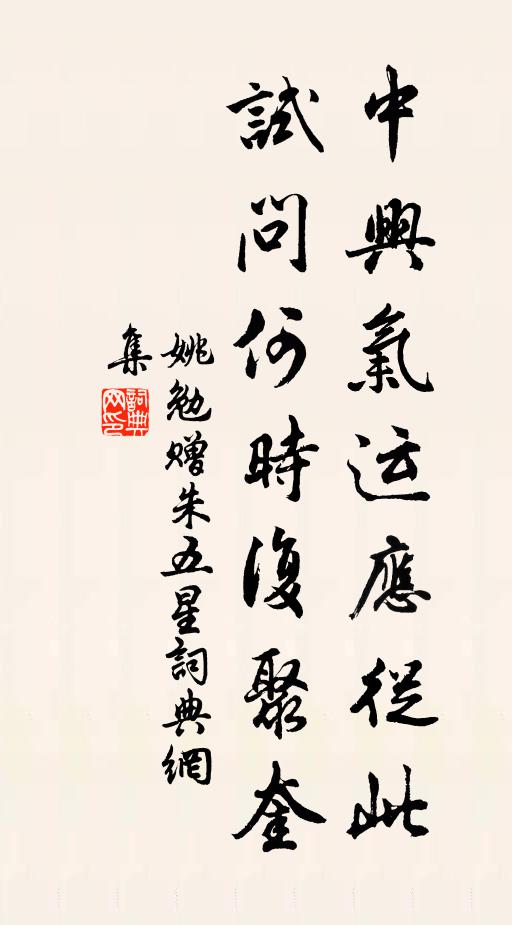 中興氣运應從此
試問何時復聚奎
姚勉赠朱五星詞典網
集
詞典网印